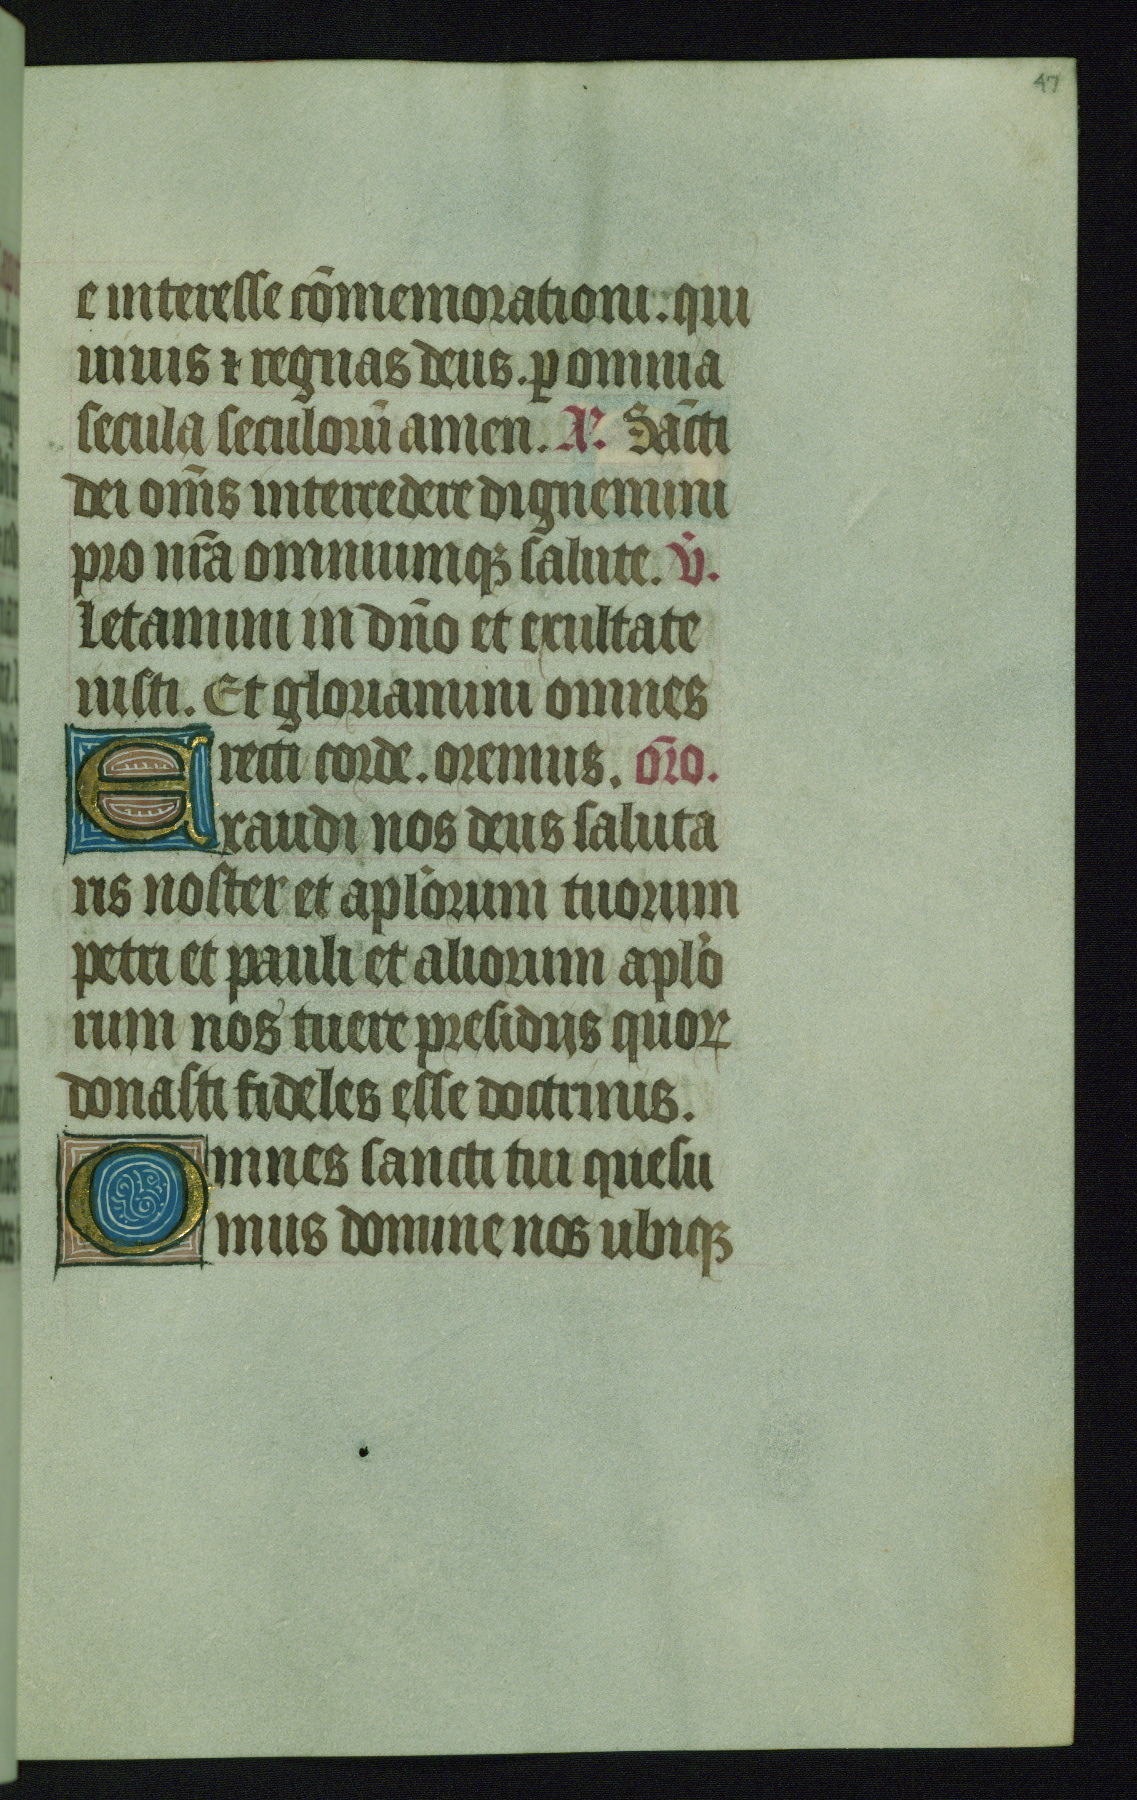 47
e interesse cōmemorationi. qui
uiuis ⁊ regnas deus. ꝑ omnia
secula seculorū amen. A᷒. Sācti
dei om̄s intercedere dignemini
pro nr̄a omniumqꝫ salute. v̄.
Letamini in dn̄o et exultate
iusti. Et gloriamini omnes
recti corde. oremus. or̄o.
Exaudi nos deus saluta
ris noster et apl̄orum tuorum
petri et pauli et aliorum apl̄o
rum nos tuere presidijs quoꝝ
donasti fideles esse doctrinis.
Omnes sancti tui quesu
mus domine nos ubiqꝫ